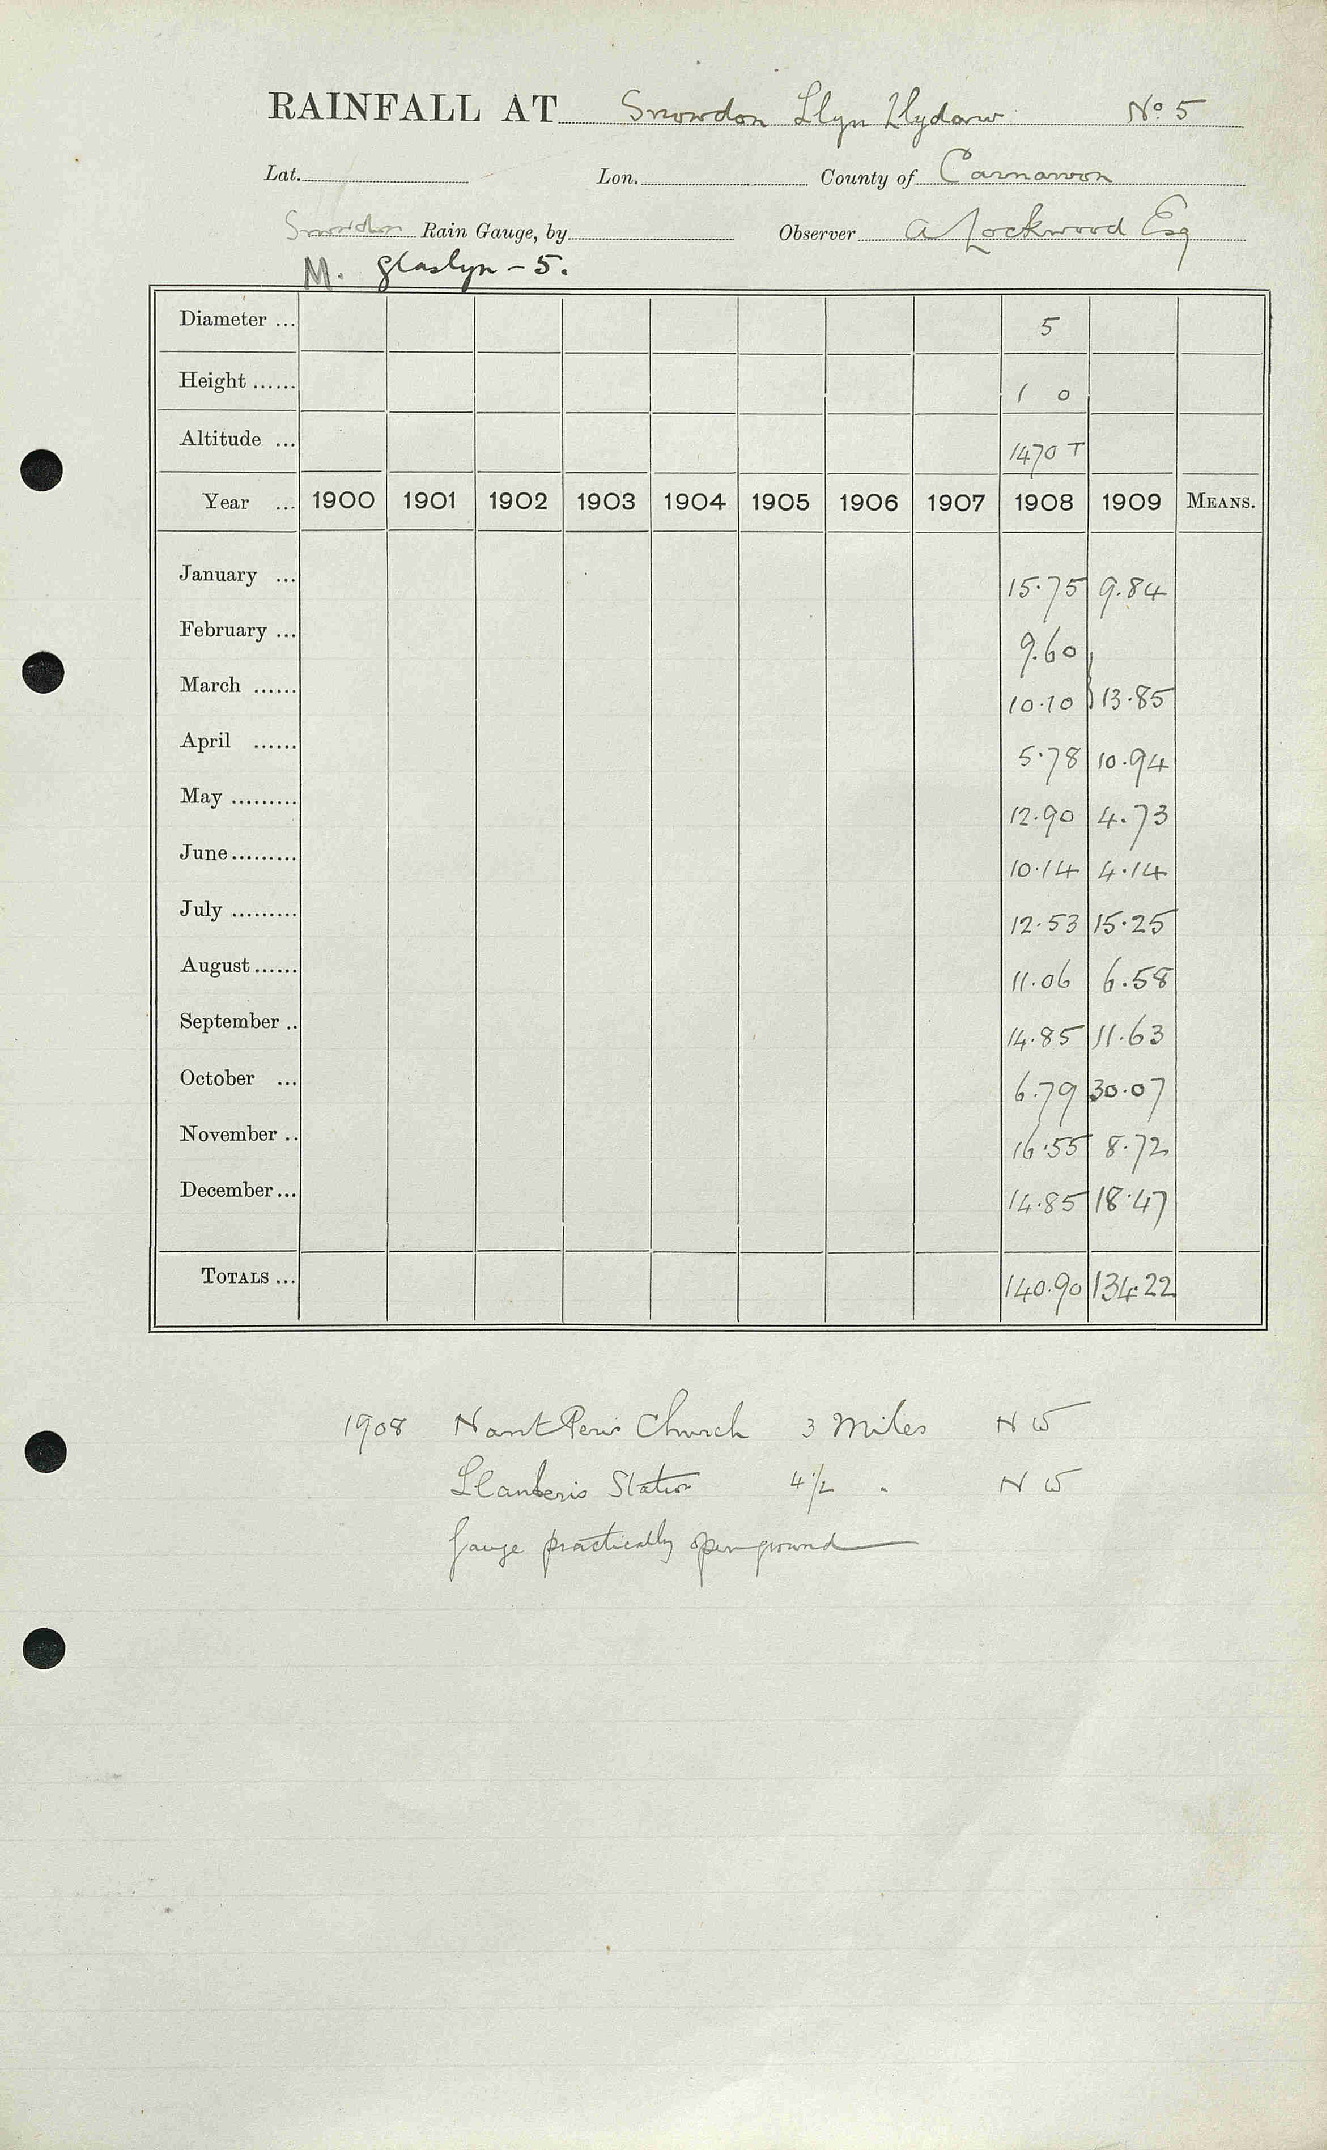 RAINFALL AT Snowdon Llyn Llydaw No 5
Lat. Lon. County of Carnarvon
Snowdon Rain Gauge, by Observer A Lockwood Esq
M. Glaslyn - 5.
Diameter ... 5
Height ...... 1 0
Altitude ... 1470 T
Year ... 1900 1901 1902 1903 1904 1905 1906 1907 1908 1909 MEANS.
January ... 15.75 9.84
February ... 9.60
March ...... 10.10 } 13.85
April ...... 5.78 10.94
May ......... 12.90 4.73
June ......... 10.14 4.14
July ......... 12.53 15.25
August ...... 11.06 6.58
September .. 14.85 11.63
October ... 6.79 30.07
November .. 16.55 8.72
December ... 14.85 18.47
TOTALS ... 140.90 134.22
1908 Nant Peris Church 3 Miles NW
Llanberis Station 4 1/2 " NW
Gauge practically open ground